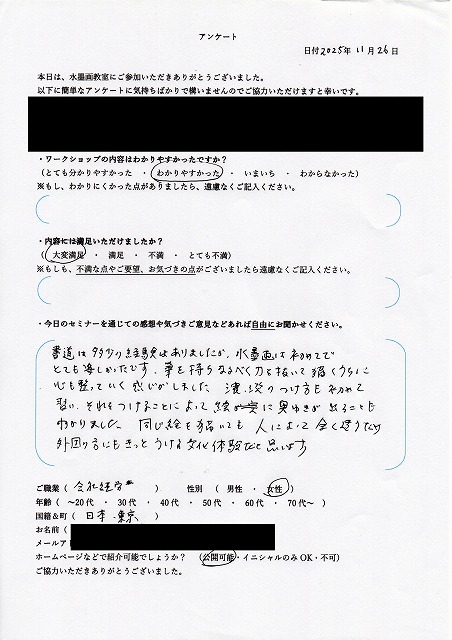 アンケート
日付 2025年 11月 26日
本日は、水墨画教室にご参加いただきありがとうございました。
以下に簡単なアンケートに気持ちばかりで構いませんのでご協力いただけますと幸いです。
・ワークショップの内容はわかりやすかったですか?
（とても分かりやすかった ・ わかりやすかった ・ いまいち ・ わからなかった）
※もし、わかりにくかった点がありましたら、遠慮なくご記入ください。
・内容には満足いただけましたか?
（ 大変満足 ・ 満足 ・ 不満 ・ とても不満）
※もしも、不満な点やご要望、お気づきの点がございましたら遠慮なくご記入ください。
・今日のセミナーを通じての感想や気づきご意見などあれば自由にお聞かせください。
書道は多少の経験はありましたが、水墨画は初めてで
とても楽しかったです。筆を持ちなるべく力を抜いて描くうちに
心も整っていく感じがしました。濃淡のつけ方も初めて
習い、それをつけることによって絵が に奥ゆきが出ることも
わかりました。同じ絵を描いても 人によって全く違うため
外国の方にもきっとうける文化体験だと思います
ご職業（ 会社経営 ） 性別 （ 男性 ・ 女性 ）
年齢（ ～20代 ・ 30代 ・ 40代 ・ 50代 ・ 60代 ・ 70代～ ）
国籍&町（ 日本・東京 ）
お名前（
メールア
ホームページなどで紹介可能でしょうか？ （公開可能・イニシャルのみOK・不可）
ご協力いただきありがとうございました。